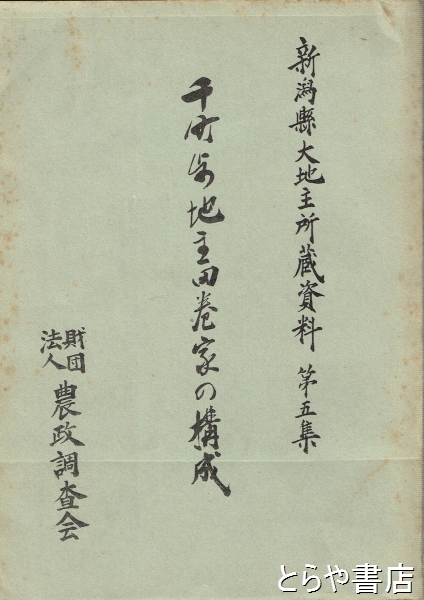 新潟縣大地主所蔵資料 第五集
千町歩地主田巻家の構成
財団法人 農政調査会
とらや書店